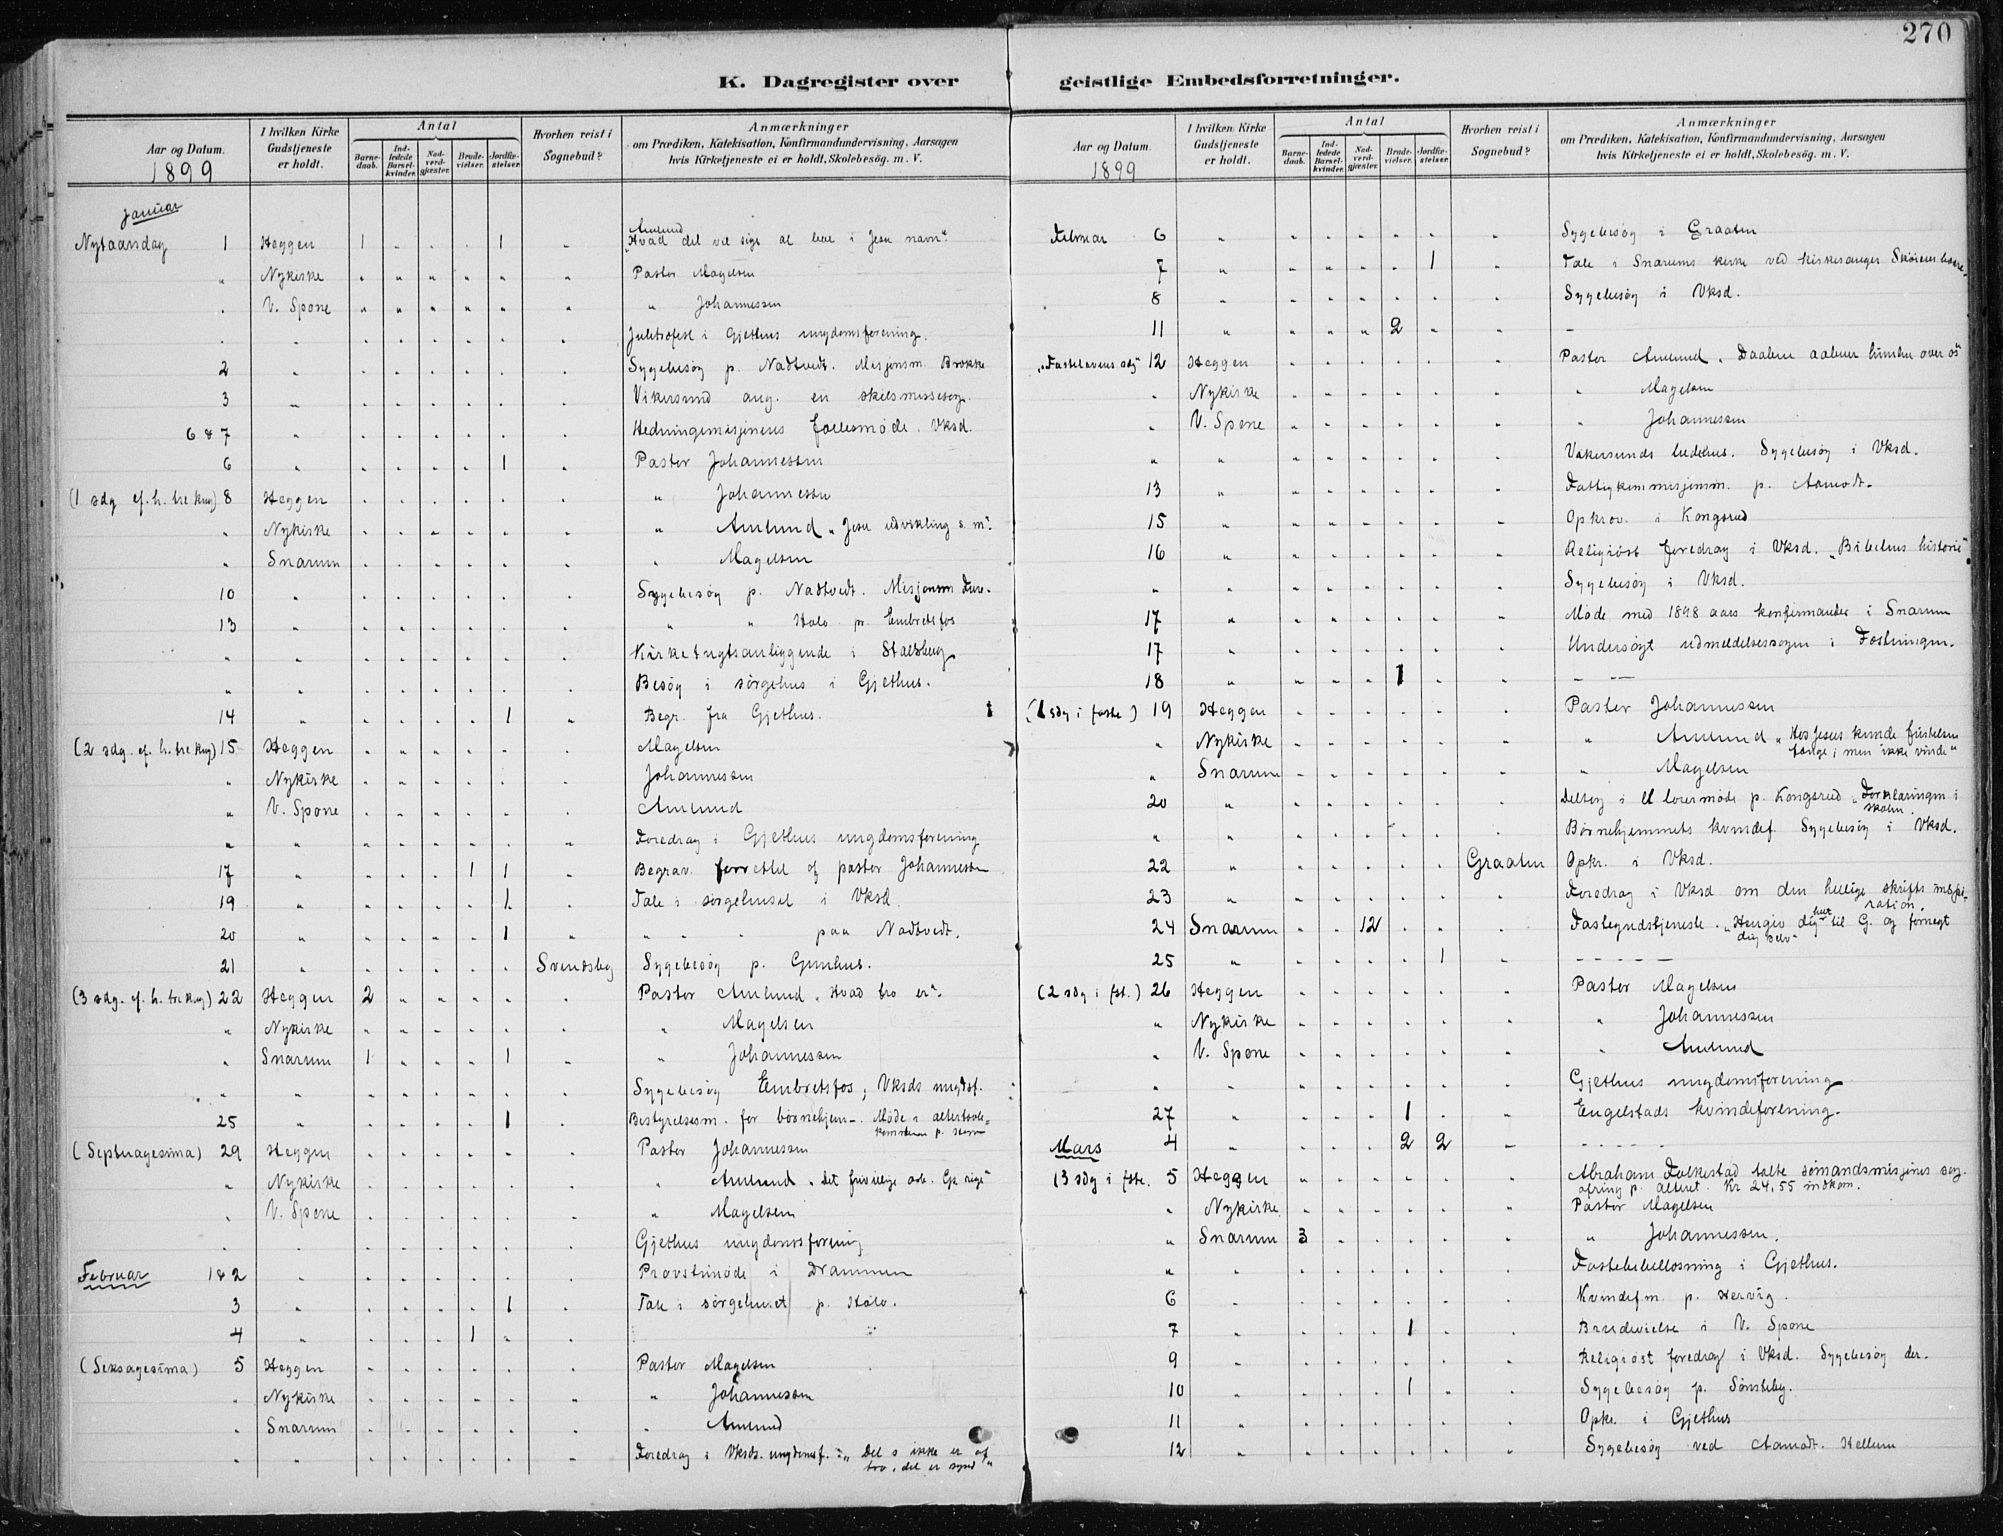 270
K. Dagregister over
geistlige Embedsforretninger.
Aar og Datum.
1899
I hvilken Kirke Gudstjeneste er holdt.
Antal
Barnedaab.
Indledede Barselkvinder.
Nadverdgjæster.
Brudevielser.
Jordfæstelser.
Hvorhen reist i Sognebud?
Anmærkninger
om Prædiken, Katekisation, Konfirmandundervisning, Aarsagen
hvis Kirketjeneste ei er holdt, Skolebesøg. m. V.
Januar
Amlund
Nytaarsdag 1 Heggen 1 " " " 1 " "Hvad det vil sige at bede i Jesu navn".
" Nykirke " " " " " " Pastor Magelsen
" V. Spone " " " " " " " Johannessen
" " " " " " " " Juletræfest i Gjethus ungdomsforening.
2 " " " " " " " Sygebesøg p. Nadtvedt. Misjonsm. Brokke
3 " " " " " " " Vikersund ang. en skilsmissesag.
6 & 7 " " " " " " " Hedningemisjonens fællesmøde. Vksd.
6 " " " " " 1 " Pastor Johannessen
(1 sdg. ef. h. tre kng) 8 Heggen " " " " " " " Johannessen
" Nykirke " " " " " " " Amlund "Jesu udvikling s. m".
" Snarum " " " " " " " Magelsen
10 " " " " " " " Sygebesøg p. Nadtvedt. Misjonsm
13 " " " " " " " " " p. Embretsfos
" " " " " " " " Kirketugtsanliggende i Stalsberg
" " " " " " " " Besøg i sørgehus i Gjethus.
14 " " " " " 1 " Begr. fra Gjethus.
(2 sdg. ef. h. tre kng) 15 Heggen " " " " " " Magelsen
" Nykirke " " " " " " Johannessen
" V. Spone " " " " " " Amlund
" " " " " " " " Foredrag i Gjethus ungdomsforening
17 " " " " 1 1 " Begrav. forrettet af pastor Johannessen
19 " " " " " 1 " Tale i sørgehuset i Vksd.
20 " " " " " 1 " " " " paa Nadtvedt.
21 " " " " " " Svendsby Sygebesøg p. Gunhus.
(3 sdg. ef. h. tre kng) 22 Heggen 2 " " " " " Pastor Amlund "Hvad tro er".
" Nykirke " " " " " " " Magelsen
" Snarum 1 " " " 1 " " Johannessen
" " " " " " " " Sygebesøg Embretsfos; Vksds ungdsf.
25 " " " " " 1 " Bestyrelsesm. for børnehjem. Møde i
(Septuagesima) 29 Heggen " " " " " " Pastor Johannessen
" Nykirke " " " " " " " Amlund "Det frivillige arb. Gs rige"
" V. Spone " " " " " " " Magelsen
" " " " " " " " Gjethus ungdomsforening
Februar 1 & 2 " " " " " " " Provstimøde i Drammen
3 " " " " " 1 " Tale i sørgehuset p.
4 " " " " 1 " "
(Seksagesima) 5 Heggen " " " " " " Pastor Magelsen
" Nykirke " " " " " " " Johannessen
" Snarum " " " " " " " Amlund
" " " " " " " " Foredrag i Vksds. ungdomsf.: "Det s ikke er af
tro, det er synd"
Aar og Datum.
1899
I hvilken Kirke Gudstjeneste er holdt.
Antal
Barnedaab.
Indledede Barselkvinder.
Nadverdgjæster.
Brudevielser.
Jordfæstelser.
Hvorhen reist i Sognebud?
Anmærkninger
om Prædiken, Katekisation, Konfirmandundervisning, Aarsagen
hvis Kirketjeneste ei er holdt, Skolebesøg. m. V.
Februar 6 " " " " " " " Sygebesøg i Graaten
7 " " " " " 1 " Tale i Snarums kirke ved kirkesanger
8 " " " " " " " Sygebesøg i Vksd.
11 " " " " 2 " " -
"Fastelavens sdg" 12 Heggen " " " " " " Pastor Amlund. "Daaben aabner himlen over os"
" Nykirke " " " " " " " Magelsen
" V. Spone " " " " " " " Johannessen
" " " " " " " " Vikersunds bedehus. Sygebesøg i Vksd.
13 " " " " " " " Fattigkommisjonsm. p. Aamodt.
15 " " " " " " " Opkrov. i Kongsrud
16 " " " " " " " Religiøst foredrag i Vksd. "Bibelens historie"
" " " " " " " " Sygebesøg i Vksd.
17 " " " " " " " Møde med 1898 aars konfirmander i Snarum
17 " " " " " " " Undersøgt udmeldelsessagen i
18 " " " " 1 " " - - -
(1 sdg i faste) 19 Heggen " " " " " " Pastor Johannessen
" Nykirke " " " " " " " Amlund "Hos Jesus kunde fristelsen
fænge i men ikke vinde"
" Snarum " " " " " " " Magelsen
20 " " " " " " " Deltog i et lærermøde p. Kongsrud "Forklaringen i
skolen"
" " " " " " " " Børnehjemmets kvindef. Sygebesøg i Vksd.
22 " " " " " " Graaten Opkr. i Vksd.
23 " " " " " " " Foredrag i Vksd om den hellige skrifts inspi-
ration.
24 Snarum " " 12 " " " Fastegudstjeneste. "Hengiv dig helt til G. og fornegt
dig selv"
25 " " " " " 1 " - - - - -
(2 sdg i fst.) 26 Heggen " " " " " " Pastor Magelsen
" Nykirke " " " " " " " Johannessen
" V. Spone " " " " " " " Amlund
" " " " " " " " Gjethus ungdomsforening
27 " " " " 1 " " Engelstads kvindeforening.
Mars 4 " " " " 2 2 " - - - - -
(3 sdg i fste. 5 Heggen " " " " " " Abraham Folkestad talte sømandsmisjonens sag.
ofring p. alteret. Kr 24,55 indkom.
" Nykirke " " " " " " Pastor Magelsen
" Snarum 3 " " " " " " Johannessen.
" " " " " " " " Fastebibellæsning i Gjethus.
6 " " " " " " " Kvindef.m. p. Hervig.
7 " " " " 1 " " Brudevielse i V. Spone
9 " " " " " " " Religiøst foredrag i Vksd. Sygebesøg der.
10 " " " " 1 " " Sygebesøg p. Sønsteby.
11 " " " " " " " Opkr. i Gjethus
12 " " " " " " " Sygebesøg ved Aamodt. Hellum